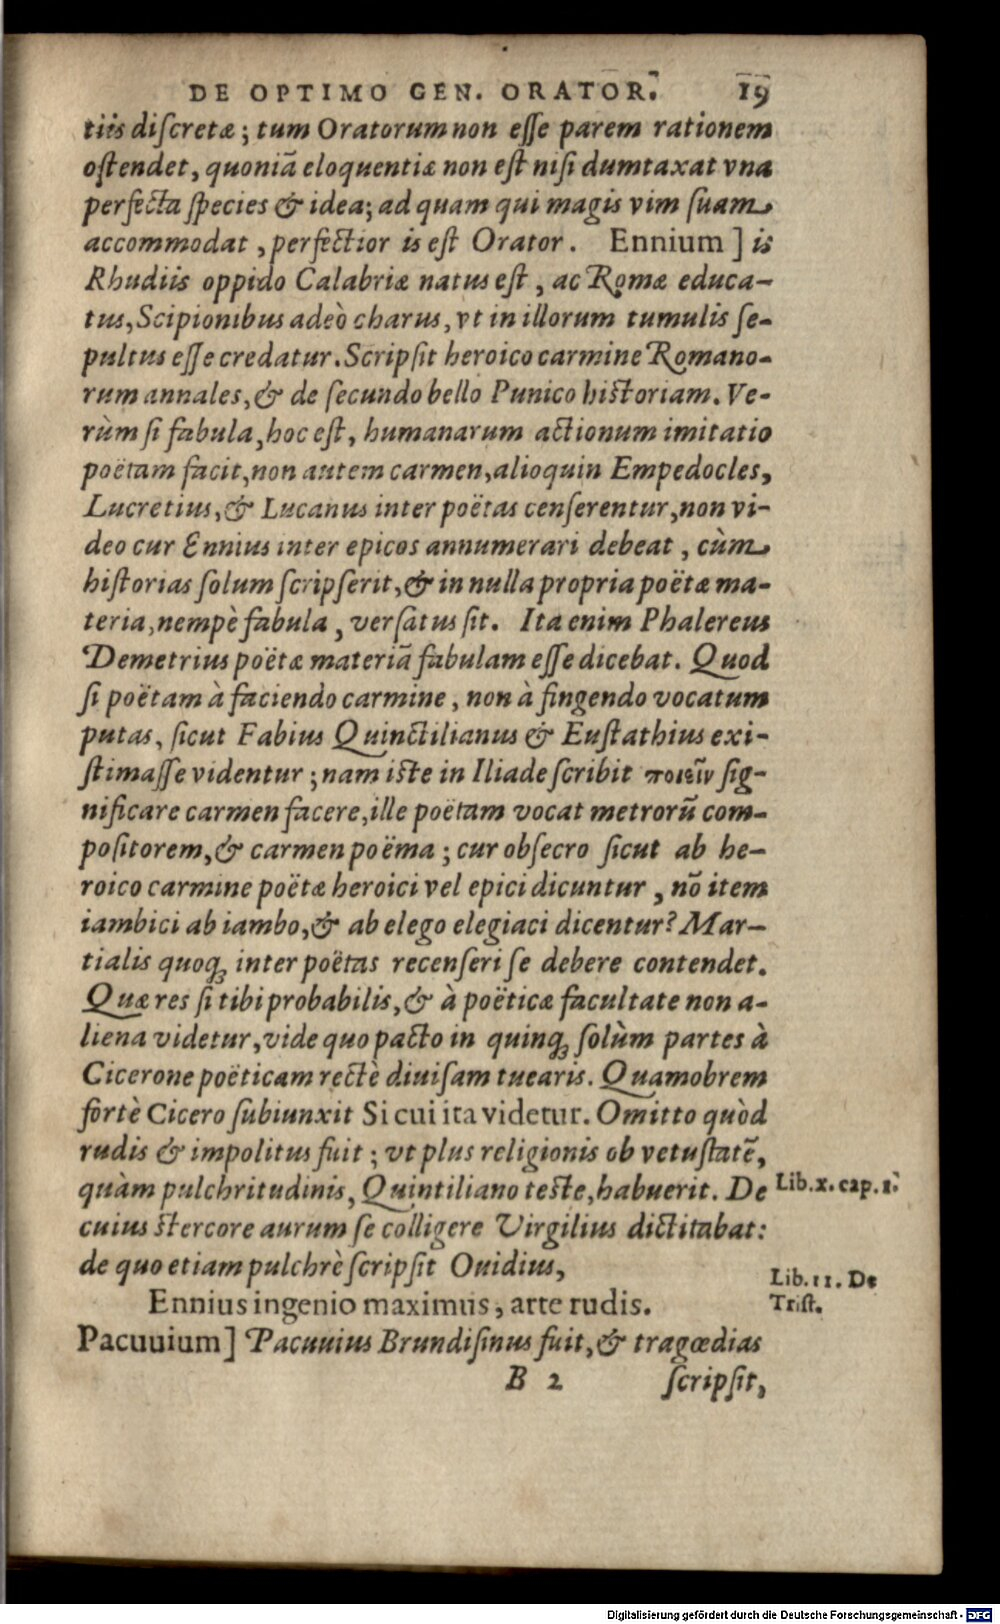 DE OPTIMO GEN. ORATOR. 19
tiis discretæ; tum Oratorum non esse parem rationem
ostendet, quoniā eloquentiæ non est nisi dumtaxat vna
perfecta species & idea; ad quam qui magis vim suam
accommodat, perfectior is est Orator. Ennium] is
Rhudiis oppido Calabriæ natus est, ac Romæ educa-
tus, Scipionibus adeò charus, vt in illorum tumulis se-
pultus esse credatur. Scripsit heroico carmine Romano-
rum annales, & de secundo bello Punico historiam. Ve-
rùm si fabula, hoc est, humanarum actionum imitatio
poëtam facit, non autem carmen, alioquin Empedocles,
Lucretius, & Lucanus inter poëtas censerentur, non vi-
deo cur Ennius inter epicos annumerari debeat, cùm
historias solum scripserit, & in nulla propria poëtæ ma-
teria, nempè fabula, versatus sit. Ita enim Phalereus
Demetrius poëtæ materiā fabulam esse dicebat. Quod
si poëtam à faciendo carmine, non à fingendo vocatum
putas, sicut Fabius Quinctilianus & Eustathius exi-
stimasse videntur; nam iste in Iliade scribit ποιεῖν sig-
nificare carmen facere, ille poëtam vocat metrorū com-
positorem, & carmen poëma; cur obsecro sicut ab he-
roico carmine poëtæ heroici vel epici dicuntur, nō item
iambici ab iambo, & ab elego elegiaci dicentur? Mar-
tialis quoq; inter poëtas recenseri se debere contendet.
Quæ res si tibi probabilis, & à poëticæ facultate non a-
liena videtur, vide quo pacto in quinq; solùm partes à
Cicerone poëticam rectè diuisam tuearis. Quamobrem
fortè Cicero subiunxit Si cui ita videtur. Omitto quòd
rudis & impolitus fuit; vt plus religionis ob vetustatē,
quàm pulchritudinis, Quintiliano teste, habuerit. De
Lib. x. cap. 1.
cuius stercore aurum se colligere Virgilius dictitabat:
de quo etiam pulchrè scripsit Ouidius,
Lib. 11. De
Trist.
Ennius ingenio maximus, arte rudis.
Pacuuium] Pacuuius Brundisinus fuit, & tragœdias
B 2 scripsit,
Digitalisierung gefördert durch die Deutsche Forschungsgemeinschaft - DFG